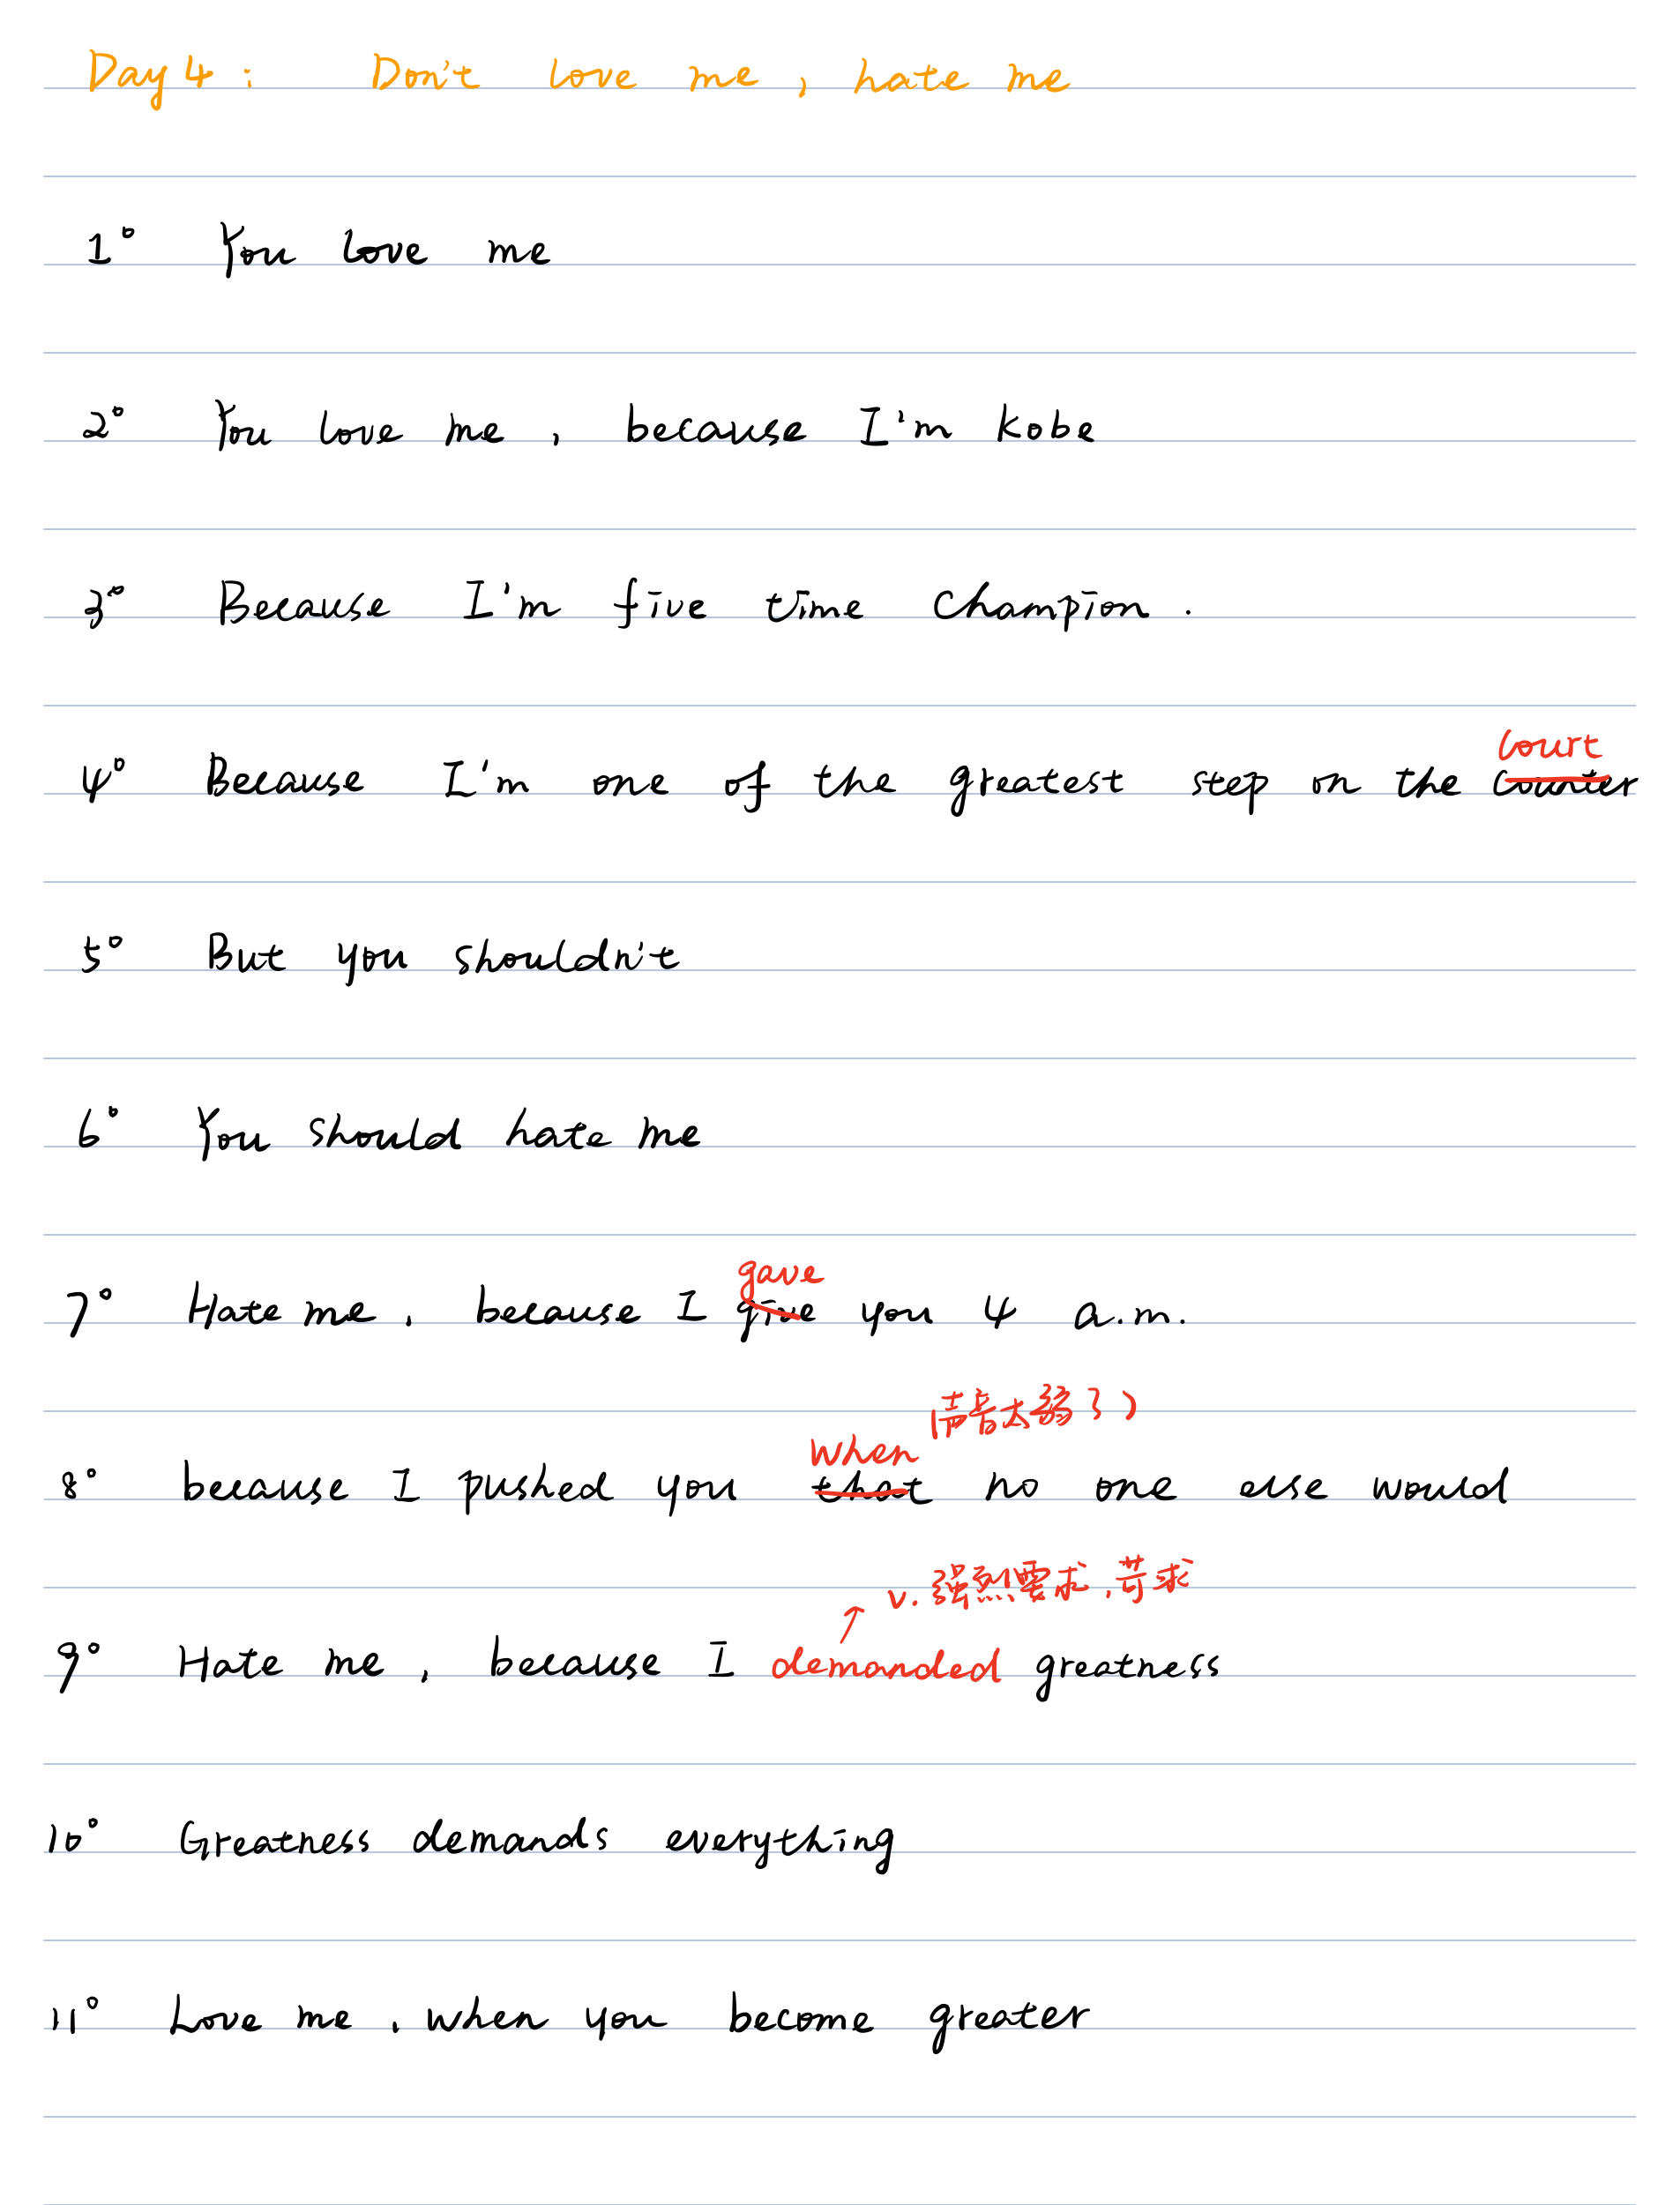 Day 4 : Don't love me , hate me
1° You love me
2° You love me , because I'm kobe
3° Because I'm five time Champion .
court
4° Because I'm one of the greatest step on the counter
5° But you shouldn't
6° You should hate me
gave
7° Hate me , because I give you 4 a.m.
when (声音太弱了)
8° because I pushed you that no one else would
v. 强烈要求, 苛求
9° Hate me , because I demanded greatness
10° Greatness demands everything
11° Love me , when you become greater